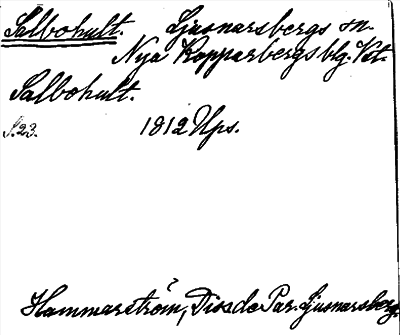 Salbohult. Ljusnarsbergs sn.
Nya Kopparbergs blg. Vst.
Salbohult.
S.23. 1812 Ups.
Hammarström, Diss de Par. Ljusnarsberg.